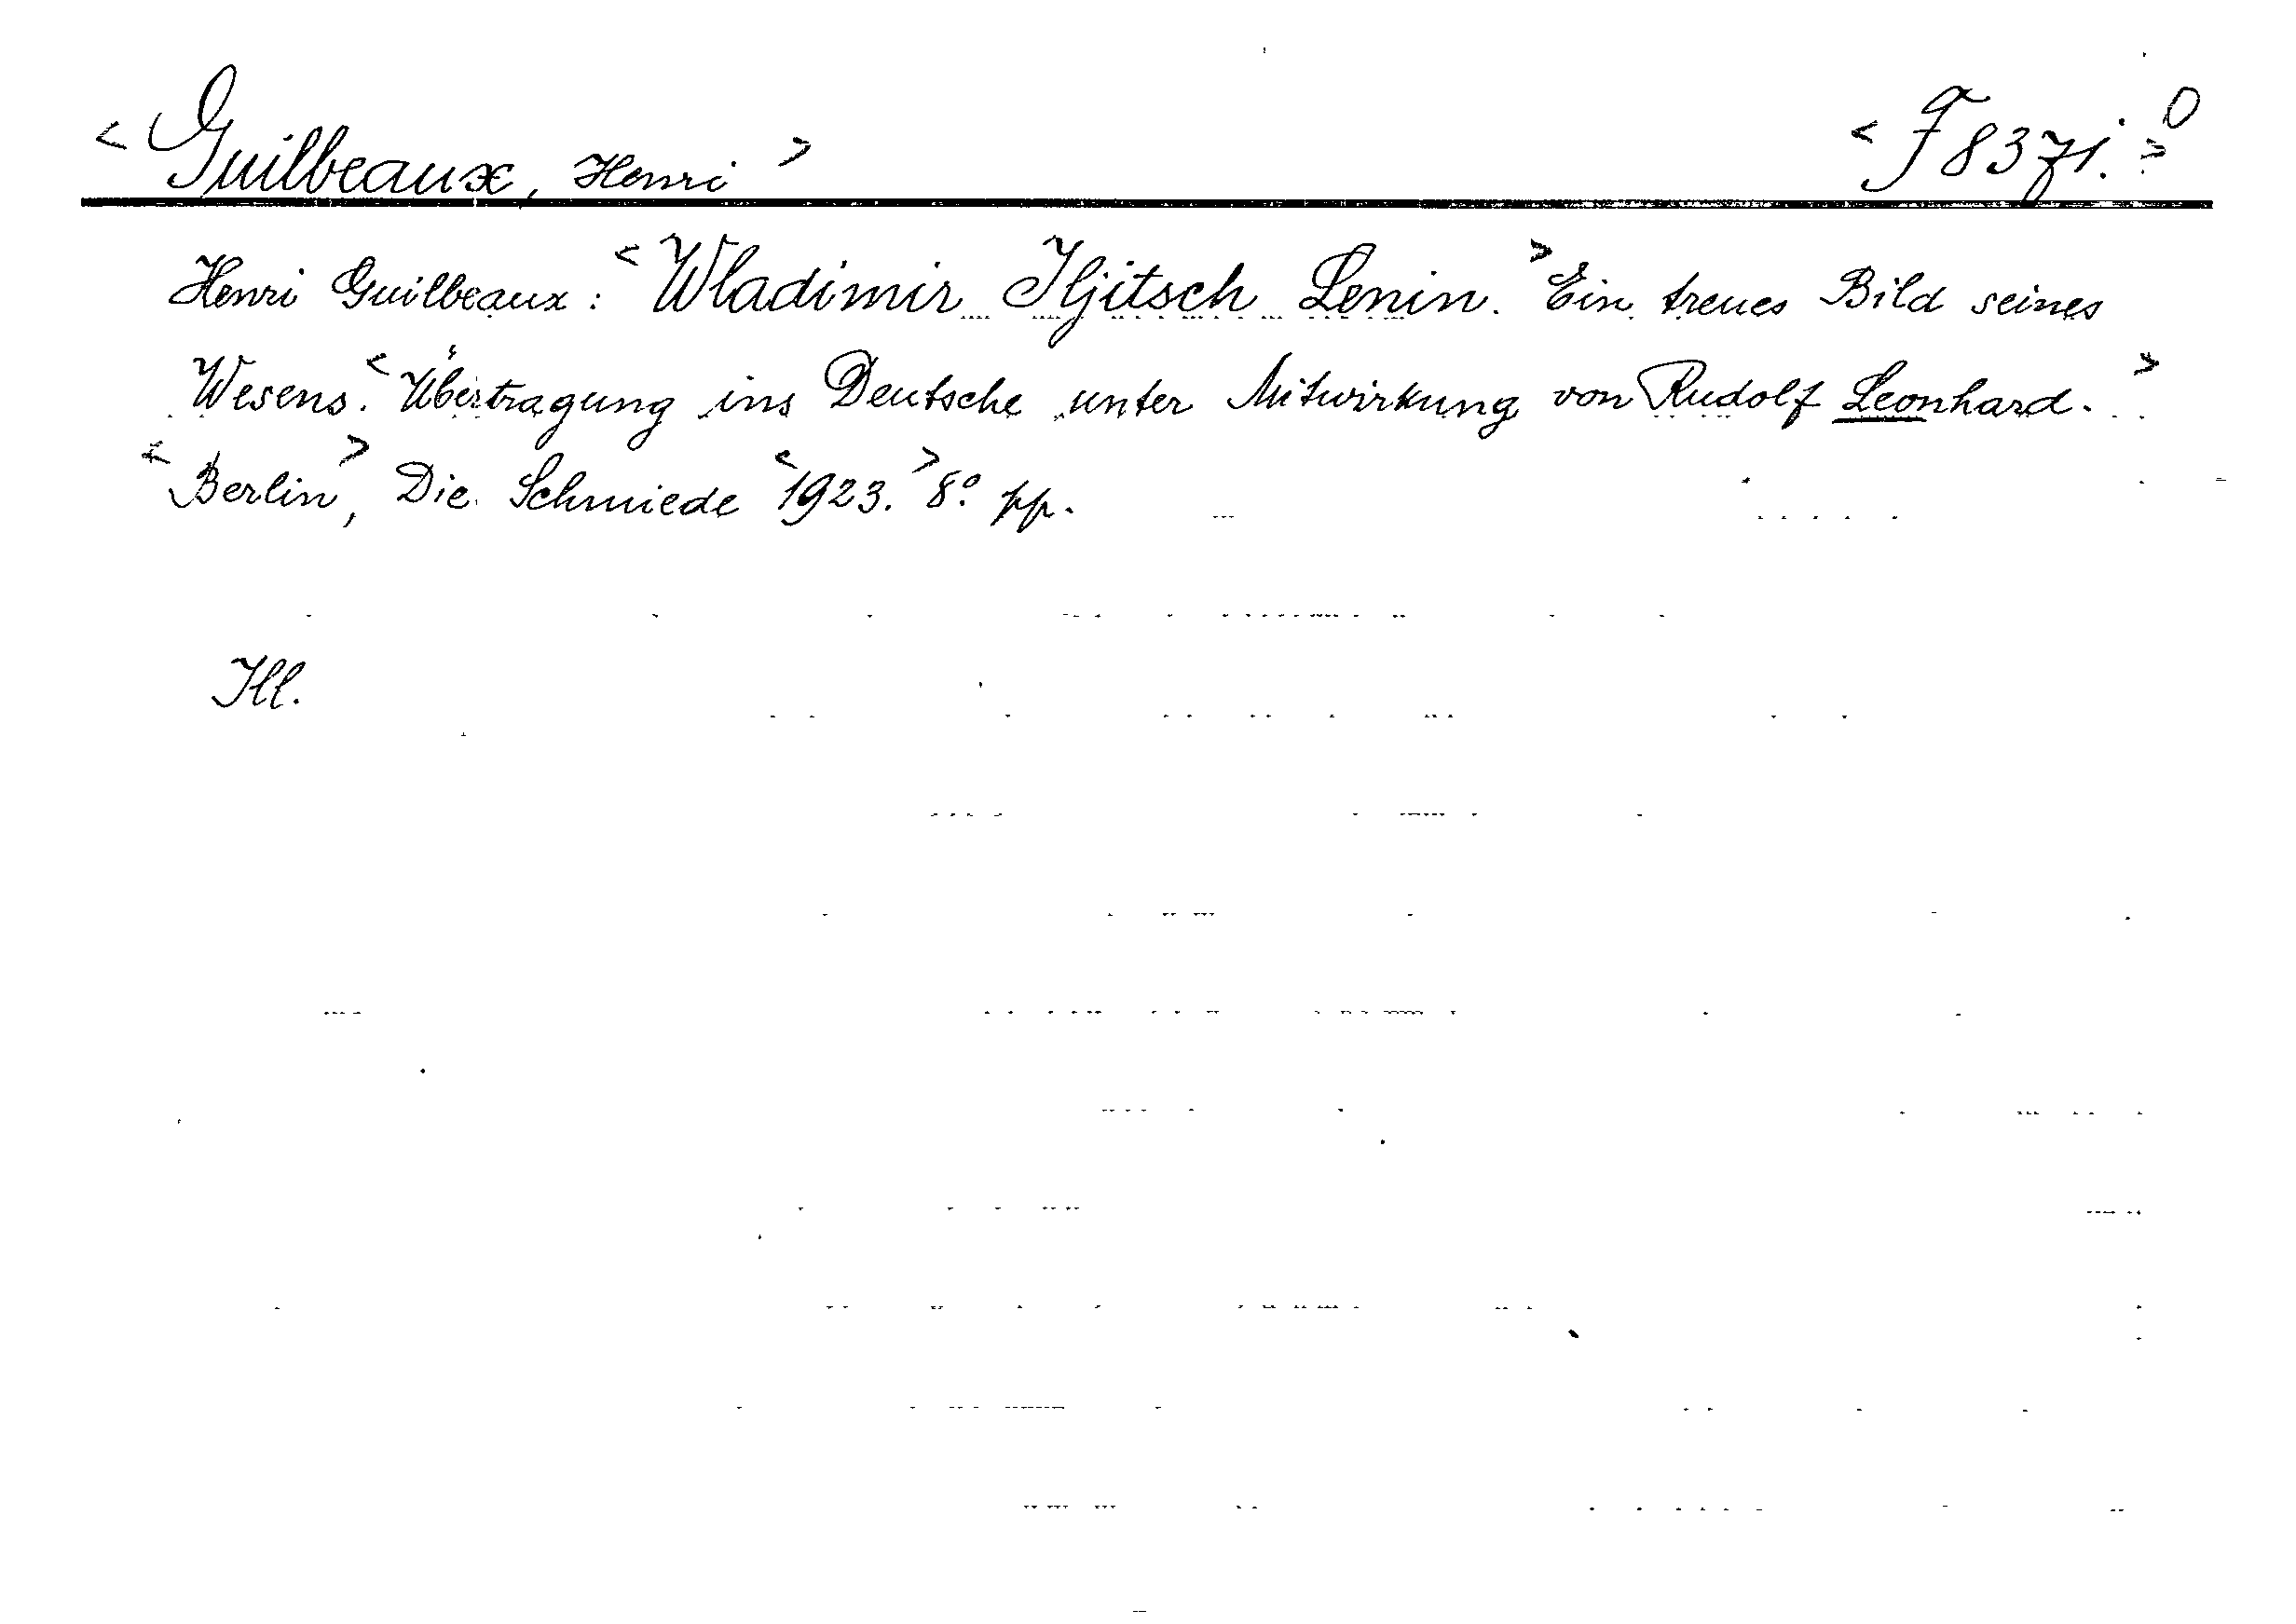 < Guilbeaux, Henri > < F 8371. > 0
Henri Guilbeaux: < Wladimir Iljitsch Lenin. > Ein treues Bild seines
Wesens. < Übertragung ins Deutsche unter Mitwirkung von Rudolf Leonhard. >
< Berlin >, Die Schmiede < 1923. > 8º. pp.
Ill.